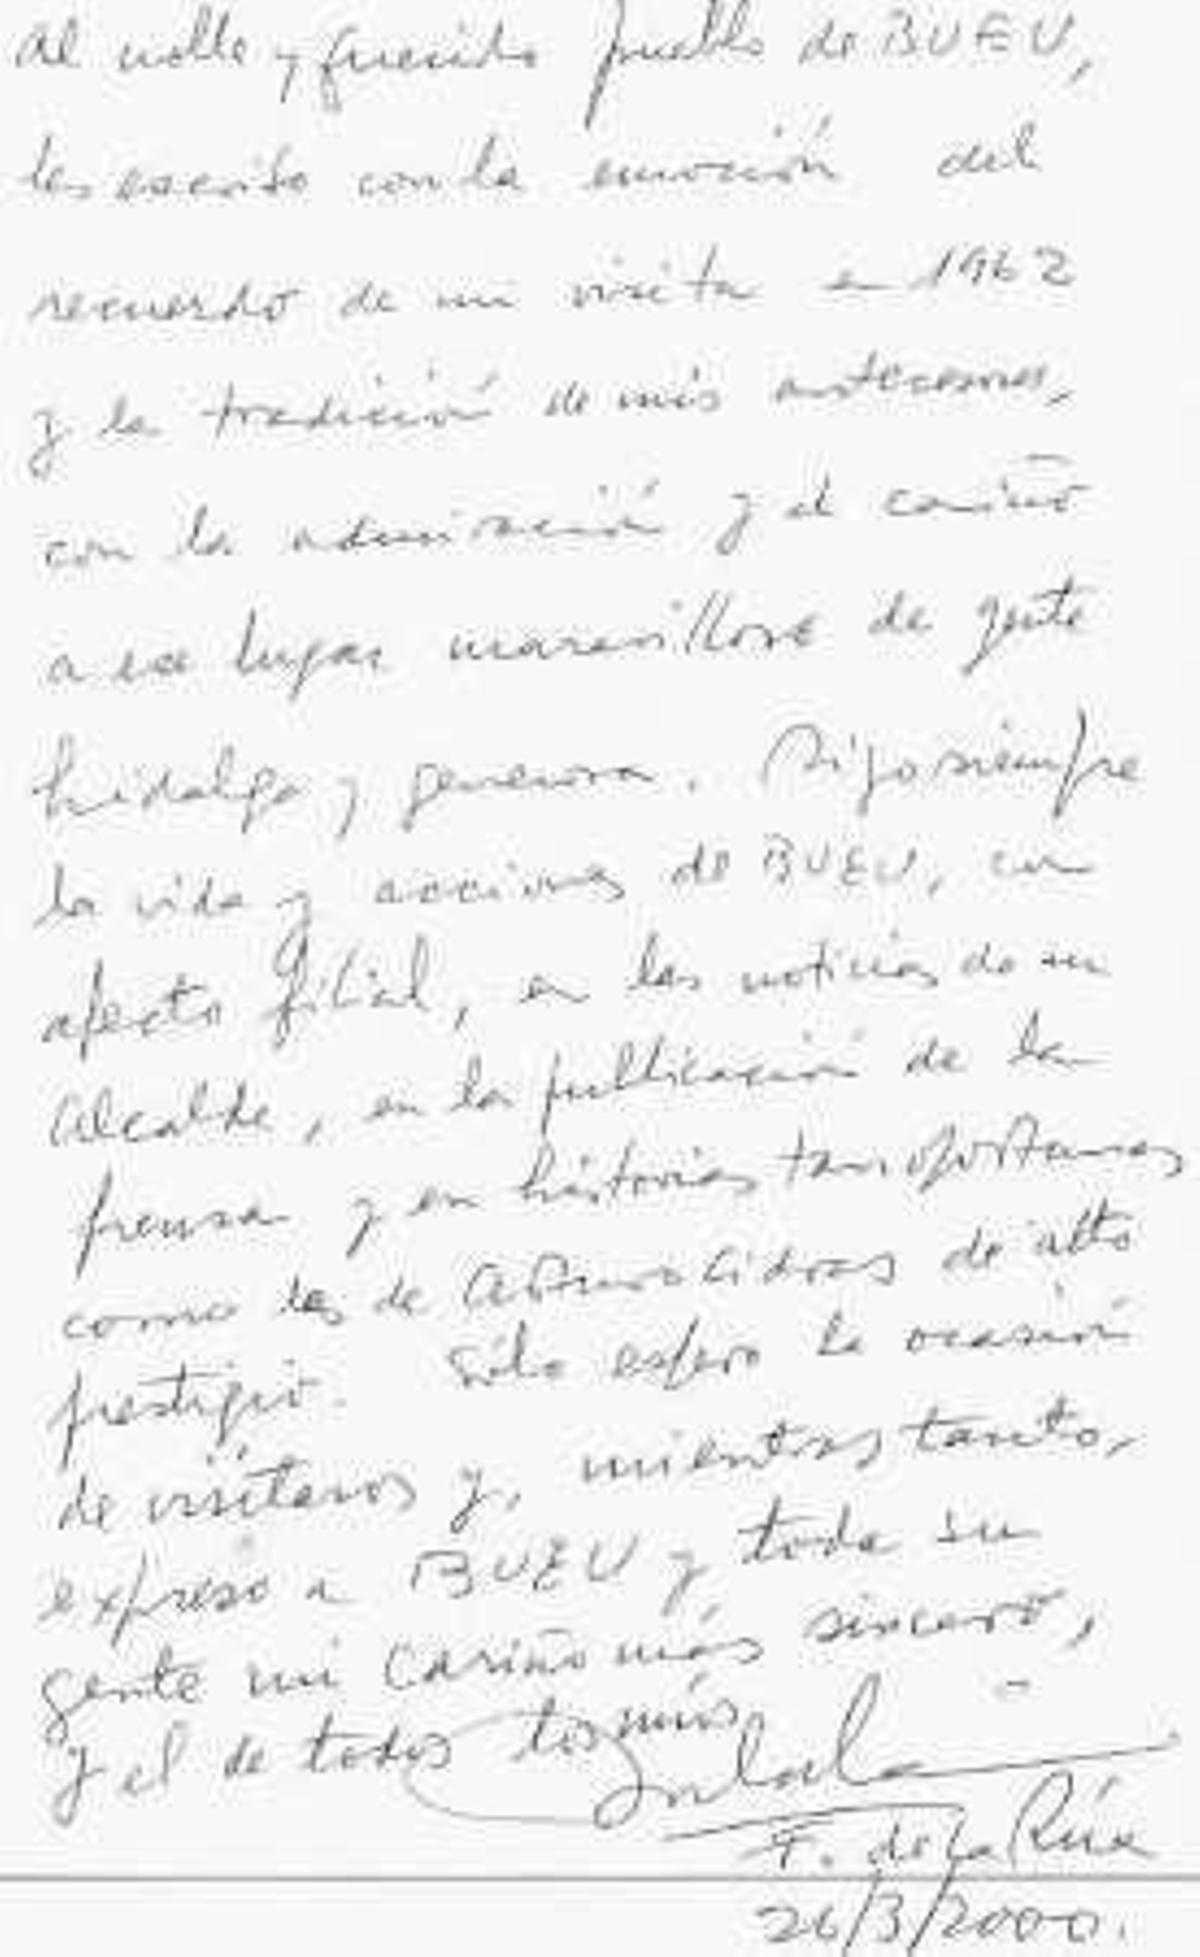 Al noble y querido pueblo de BUEU,
les escribo con la emoción del
recuerdo de mi visita en 1962
y la tradición de mis antecesores,
con la admiración y el cariño
a ese lugar maravilloso de gente
hidalga y generosa. Sigo siempre
la vida y acciones de BUEU, con
afecto filial, en las noticias de su
Alcalde, en la publicación de la
prensa y en historias tan
como las de de alto
prestigio. Sólo espero la ocasión
de visitaros y, mientras tanto,
expreso a BUEU y toda su
gente mi cariño más sincero,
y el de todos los míos
F. de la Rúa
26/3/2000.